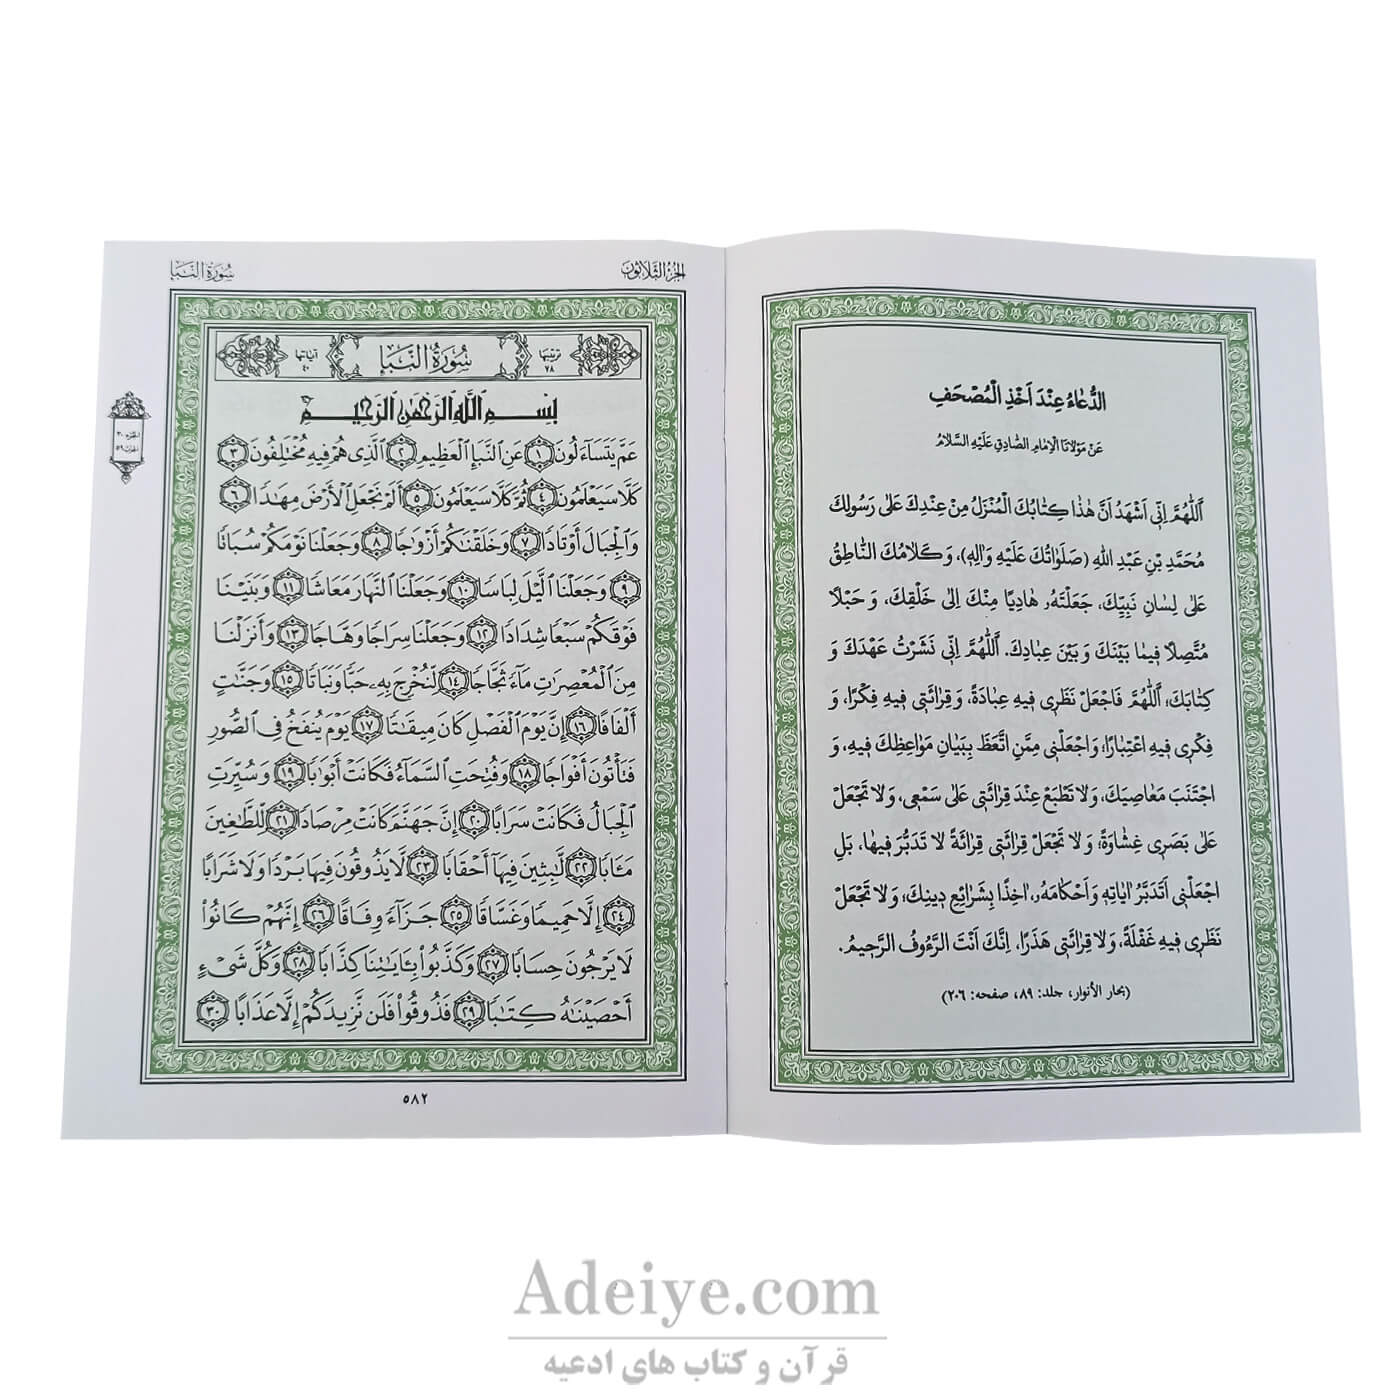 الدُّعَاءُ عِنْدَ اَخْذِ الْمُصْحَفِ
عَنْ مَوْلَانَا الْاِمَامِ الصَّادِقِ عَلَيْهِ السَّلَامُ
اَللّٰهُمَّ اِنّي اَشْهَدُ اَنَّ هٰذَا كِتَابُكَ الْمُنْزَلُ مِنْ عِنْدِكَ عَلىٰ رَسُولِكَ
مُحَمَّدِ بْنِ عَبْدِ اللهِ (صَلَوَاتُكَ عَلَيْهِ وَالِهِ)، وَ كَلَامُكَ النَّاطِقُ
عَلىٰ لِسَانِ نَبِيِّكَ، جَعَلْتَهُ هَادِيًا مِنْكَ اِلىٰ خَلْقِكَ، وَ حَبْلًا
مُتَّصِلًا فيمَا بَيْنَكَ وَ بَيْنَ عِبَادِكَ. اَللّٰهُمَّ اِنّي نَشَرْتُ عَهْدَكَ وَ
كِتَابَكَ؛ اَللّٰهُمَّ فَاجْعَلْ نَظَري فيهِ عِبَادَةً، وَ قِرَائَتي فيهِ فِكْرًا، وَ
فِكْري فيهِ اعْتِبَارًا؛ وَ اجْعَلْني مِمَّنِ اتَّعَظَ بِبَيَانِ مَوَاعِظِكَ فيهِ، وَ
اجْتَنَبَ مَعَاصِيَكَ، وَ لَا تَطْبَعْ عِنْدَ قِرَائَتي عَلىٰ سَمْعي، وَ لَا تَجْعَلْ
عَلىٰ بَصَري غِشَاوَةً؛ وَ لَا تَجْعَلْ قِرَائَتي قِرَائَةً لَا تَدَبُّرَ فيهَا، بَلِ
اجْعَلْني اَتَدَبَّرُ ايَاتِهِ وَ اَحْكَامَهُ، اخِذًا بِشَرَائِعِ دينِكَ؛ وَ لَا تَجْعَلْ
نَظَري فيهِ غَفْلَةً، وَ لَا قِرَائَتي هَذَرًا، اِنَّكَ اَنْتَ الرَّءُوفُ الرَّحيمُ.
(بحار الأنوار، جلد: ٨٩، صفحه: ٢٠٦)
الجزء الثلاثون سورة النبإ
ترتيبها ٧٨ سُورَةُ النَّبَإِ آياتها ٤٠
الجزء ٣٠
الحزب ٥٩
بِسْمِ ٱللَّهِ ٱلرَّحْمَٰنِ ٱلرَّحِيمِ
عَمَّ يَتَسَآءَلُونَ ١ عَنِ ٱلنَّبَإِ ٱلْعَظِيمِ ٢ ٱلَّذِى هُمْ فِيهِ مُخْتَلِفُونَ ٣
كَلَّا سَيَعْلَمُونَ ٤ ثُمَّ كَلَّا سَيَعْلَمُونَ ٥ أَلَمْ نَجْعَلِ ٱلْأَرْضَ مِهَٰدًا ٦
وَٱلْجِبَالَ أَوْتَادًا ٧ وَخَلَقْنَٰكُمْ أَزْوَٰجًا ٨ وَجَعَلْنَا نَوْمَكُمْ سُبَاتًا
٩ وَجَعَلْنَا ٱلَّيْلَ لِبَاسًا ١٠ وَجَعَلْنَا ٱلنَّهَارَ مَعَاشًا ١١ وَبَنَيْنَا
فَوْقَكُمْ سَبْعًا شِدَادًا ١٢ وَجَعَلْنَا سِرَاجًا وَهَّاجًا ١٣ وَأَنزَلْنَا
مِنَ ٱلْمُعْصِرَٰتِ مَآءً ثَجَّاجًا ١٤ لِّنُخْرِجَ بِهِۦ حَبًّا وَنَبَاتًا ١٥ وَجَنَّٰتٍ
أَلْفَافًا ١٦ إِنَّ يَوْمَ ٱلْفَصْلِ كَانَ مِيقَٰتًا ١٧ يَوْمَ يُنفَخُ فِى ٱلصُّورِ
فَتَأْتُونَ أَفْوَاجًا ١٨ وَفُتِحَتِ ٱلسَّمَآءُ فَكَانَتْ أَبْوَٰبًا ١٩ وَسُيِّرَتِ
ٱلْجِبَالُ فَكَانَتْ سَرَابًا ٢٠ إِنَّ جَهَنَّمَ كَانَتْ مِرْصَادًا ٢١ لِّلطَّٰغِينَ
مَـَٔابًا ٢٢ لَّٰبِثِينَ فِيهَآ أَحْقَابًا ٢٣ لَّا يَذُوقُونَ فِيهَا بَرْدًا وَلَا شَرَابًا
٢٤ إِلَّا حَمِيمًا وَغَسَّاقًا ٢٥ جَزَآءً وِفَاقًا ٢٦ إِنَّهُمْ كَانُوا۟
لَا يَرْجُونَ حِسَابًا ٢٧ وَكَذَّبُوا۟ بِـَٔايَٰتِنَا كِذَّابًا ٢٨ وَكُلَّ شَىْءٍ
أَحْصَيْنَٰهُ كِتَٰبًا ٢٩ فَذُوقُوا۟ فَلَن نَّزِيدَكُمْ إِلَّا عَذَابًا ٣٠
٥٨٢
Adeiye.com
قرآن و کتاب های ادعیه